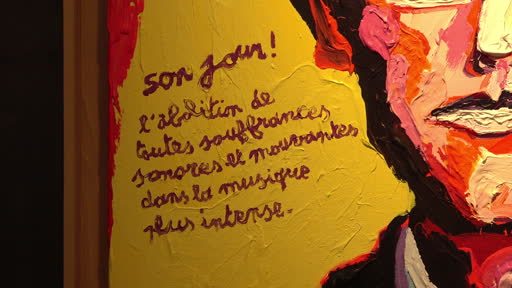 son jour!
l'abolition de
toutes souffrances
sonores et mouvantes
dans la musique
plus intense.